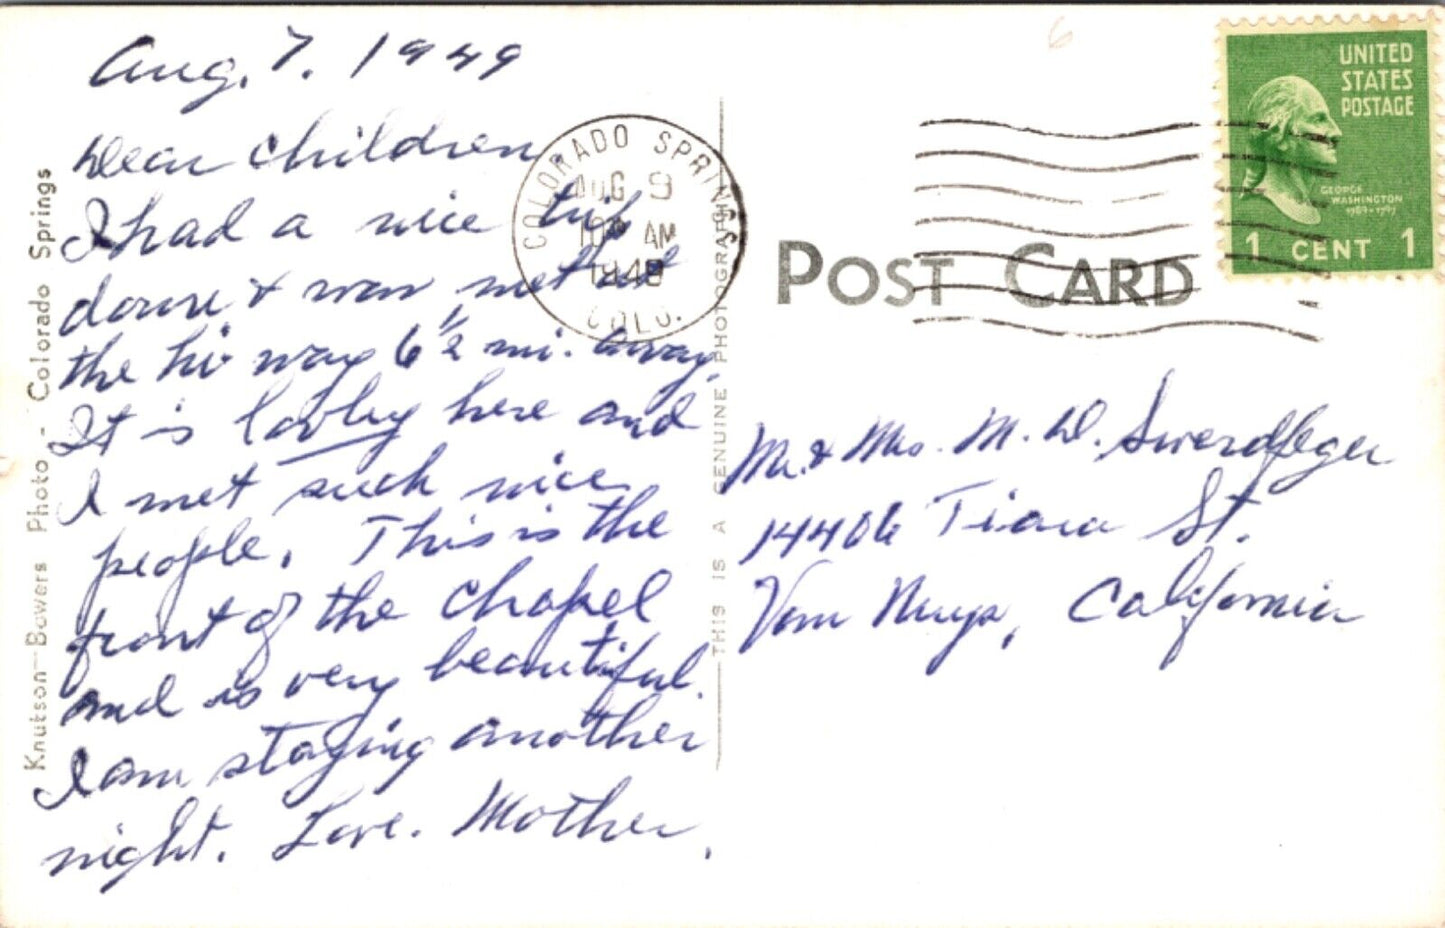 Aug. 7. 1949
Dear Children,
I had a nice trip
down & was met at
the hi way 6 1/2 mi. away.
It is lovley here and
I met such nice
people. This is the
front of the chapel
and is very beautiful.
I am staying another
night. Love. Mother.
Knutson-Bowers Photo - Colorado Springs
COLORADO SPRINGS
AUG 9
AM
COLO.
THIS IS A GENUINE PHOTOGRAPH
POST CARD
UNITED
STATES
POSTAGE
GEORGE
WASHINGTON
1789-1797
1 CENT 1
Mr. & Mrs. M. D. Swerdfeger
14406 Tiara St.
Van Nuys, California
6